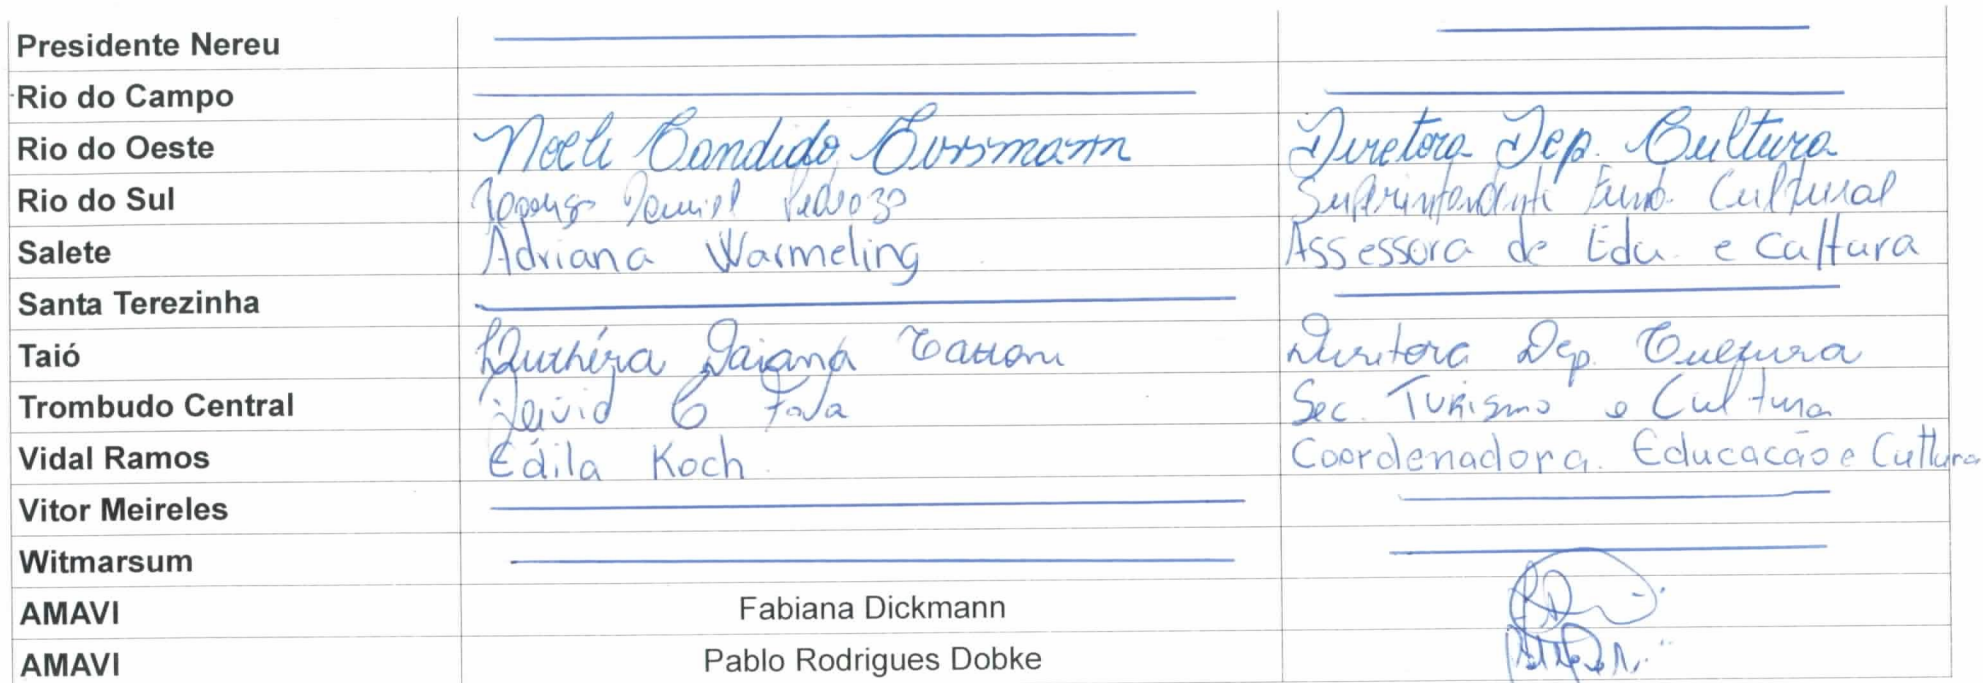 Presidente Nereu
Rio do Campo
Rio do Oeste Noeli Candido Cussmann Diretora Dep. Cultura
Rio do Sul Daniel Pedrozo Superintendente Fund. Cultural
Salete Adriana Warmeling Assessora de Edu. e Cultura
Santa Terezinha
Taió Daiana Diretora Dep. Cultura
Trombudo Central Deivid C Sec. Turismo e Cultura
Vidal Ramos Édila Koch Coordenadora Educação e Cultura
Vitor Meireles
Witmarsum
AMAVI Fabiana Dickmann
AMAVI Pablo Rodrigues Dobke